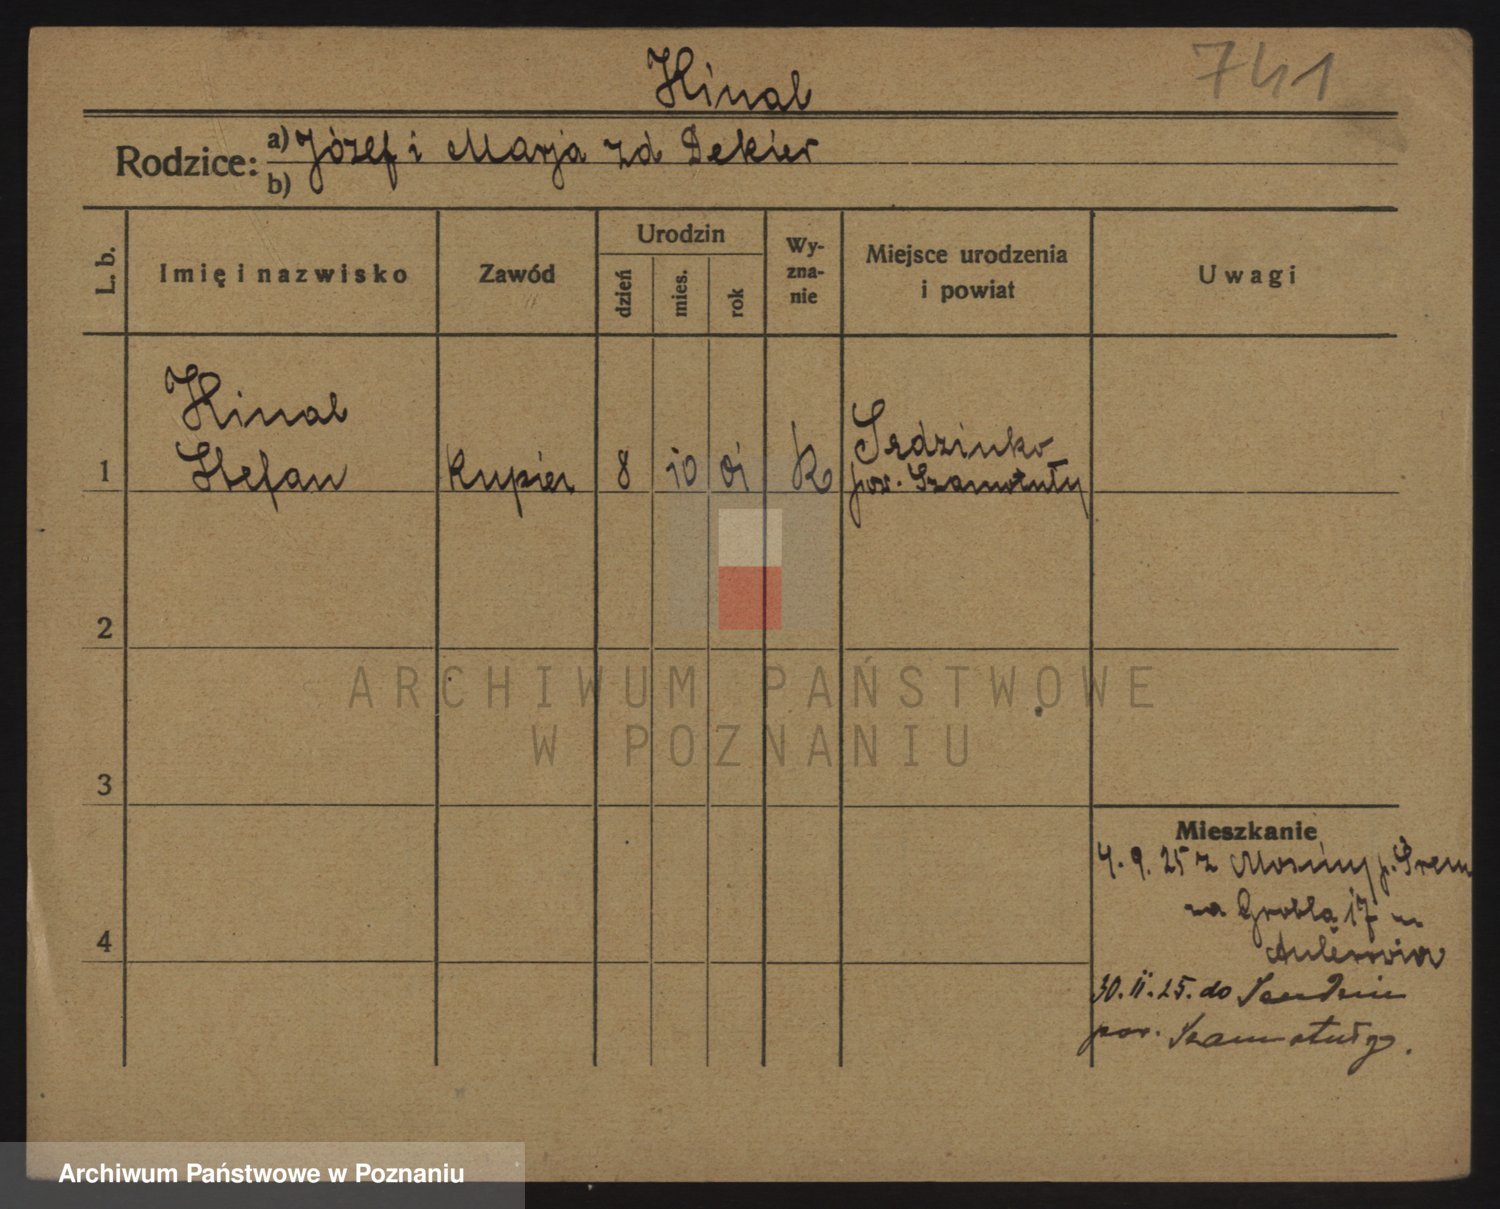 741
Hinal
Rodzice: a) Józef i Marja zd Dekier
b)
L. b.
Imię i nazwisko
Zawód
Urodzin
dzień
mies.
rok
Wy-
zna-
nie
Miejsce urodzenia
i powiat
Uwagi
Hinal
1 Stefan kupiec 8 10 01 k Sędzinko
pow. Szamotuły
2
ARCHIWUM PAŃSTWOWE
W POZNANIU
3
Mieszkanie
4. 9. 25 z Mosiny p. Śrem
na Grobla 17 u
4
30. 11. 25. do
pow. Szamotuły.
Archiwum Państwowe w Poznaniu